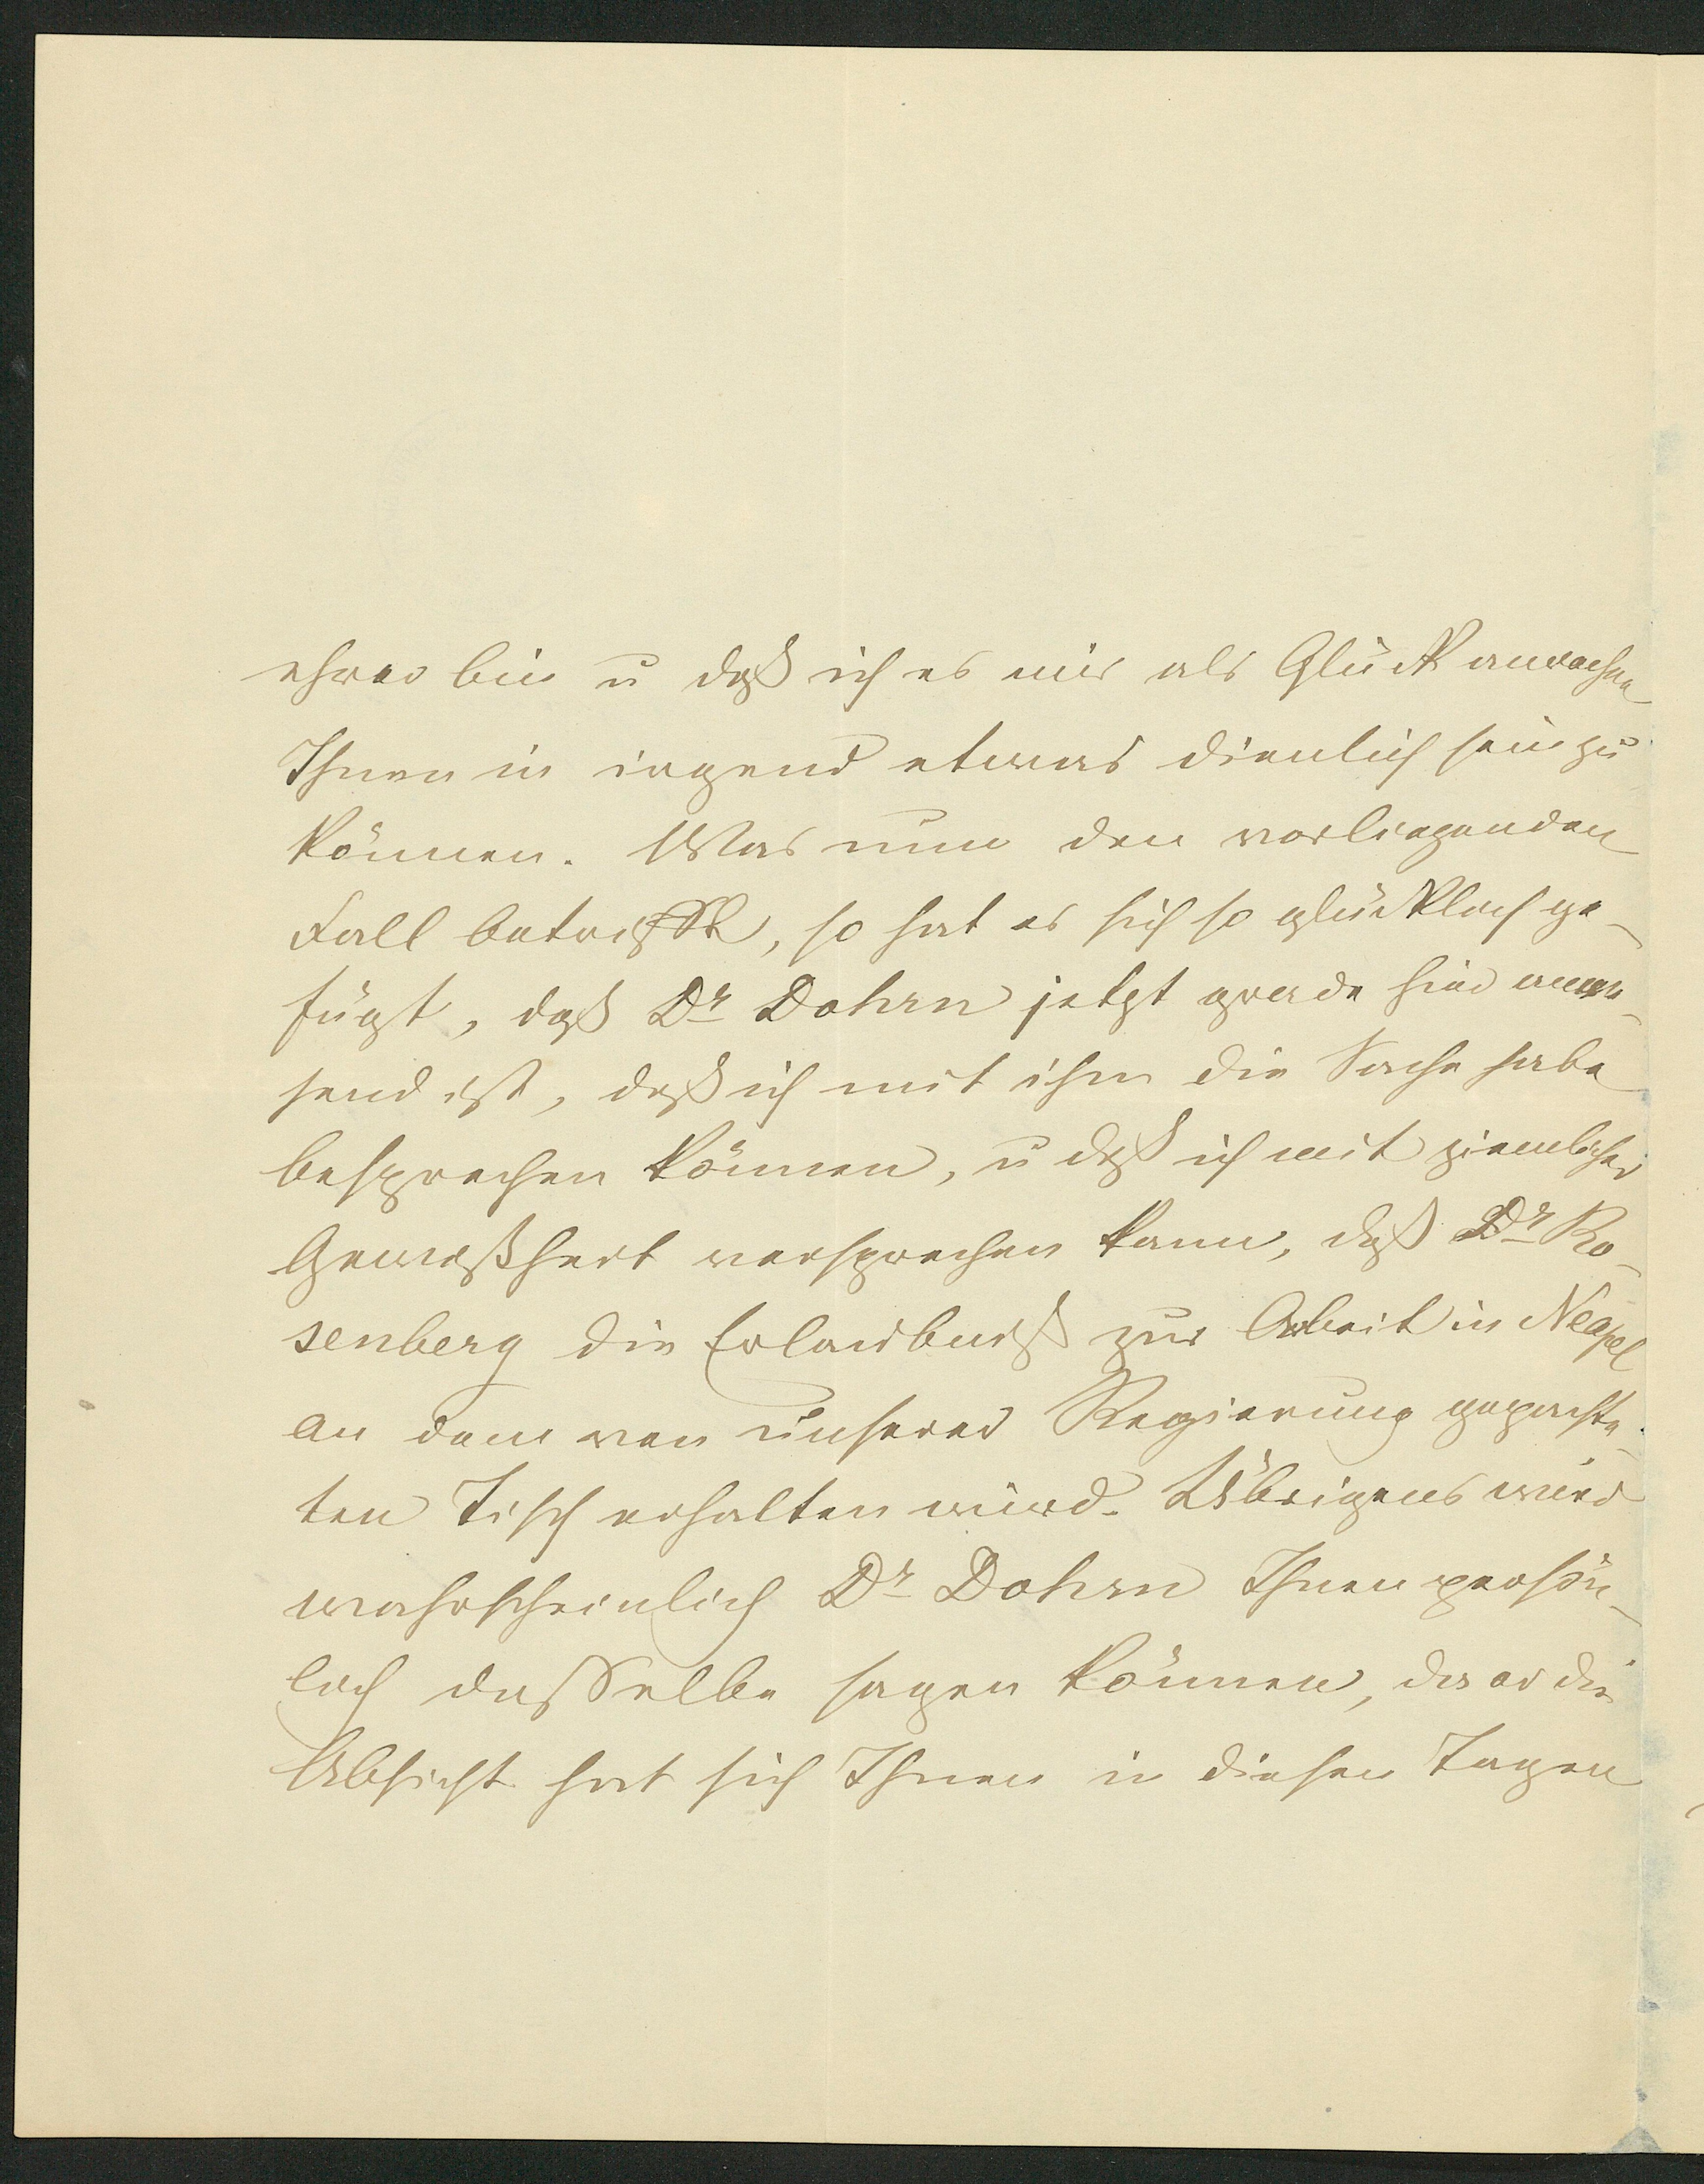 ehrer bin u daß ich es mir als Glück anrechne
Ihnen in irgend etwas dienlich sein zu
können. Was nun den vorliegenden
Fall betrifft, so hat es sich so glücklich ge-
fügt, daß Dr Dohrn jetzt grade hier anwe-
send ist, daß ich mit ihm die Sache habe
besprechen können, u daß ich mit ziemlicher
Gewißheit versprechen kann, daß Dr Ro-
senberg die Erlaubniß zur Arbeit in Neapel
an dem von unserer Regierung gepachte-
ten Tisch erhalten wird. Übrigens wird
wahrscheinlich Dr Dohrn Ihnen persön-
lich dasselbe sagen können, da er die
Absicht hat sich Ihnen in diesen Tagen